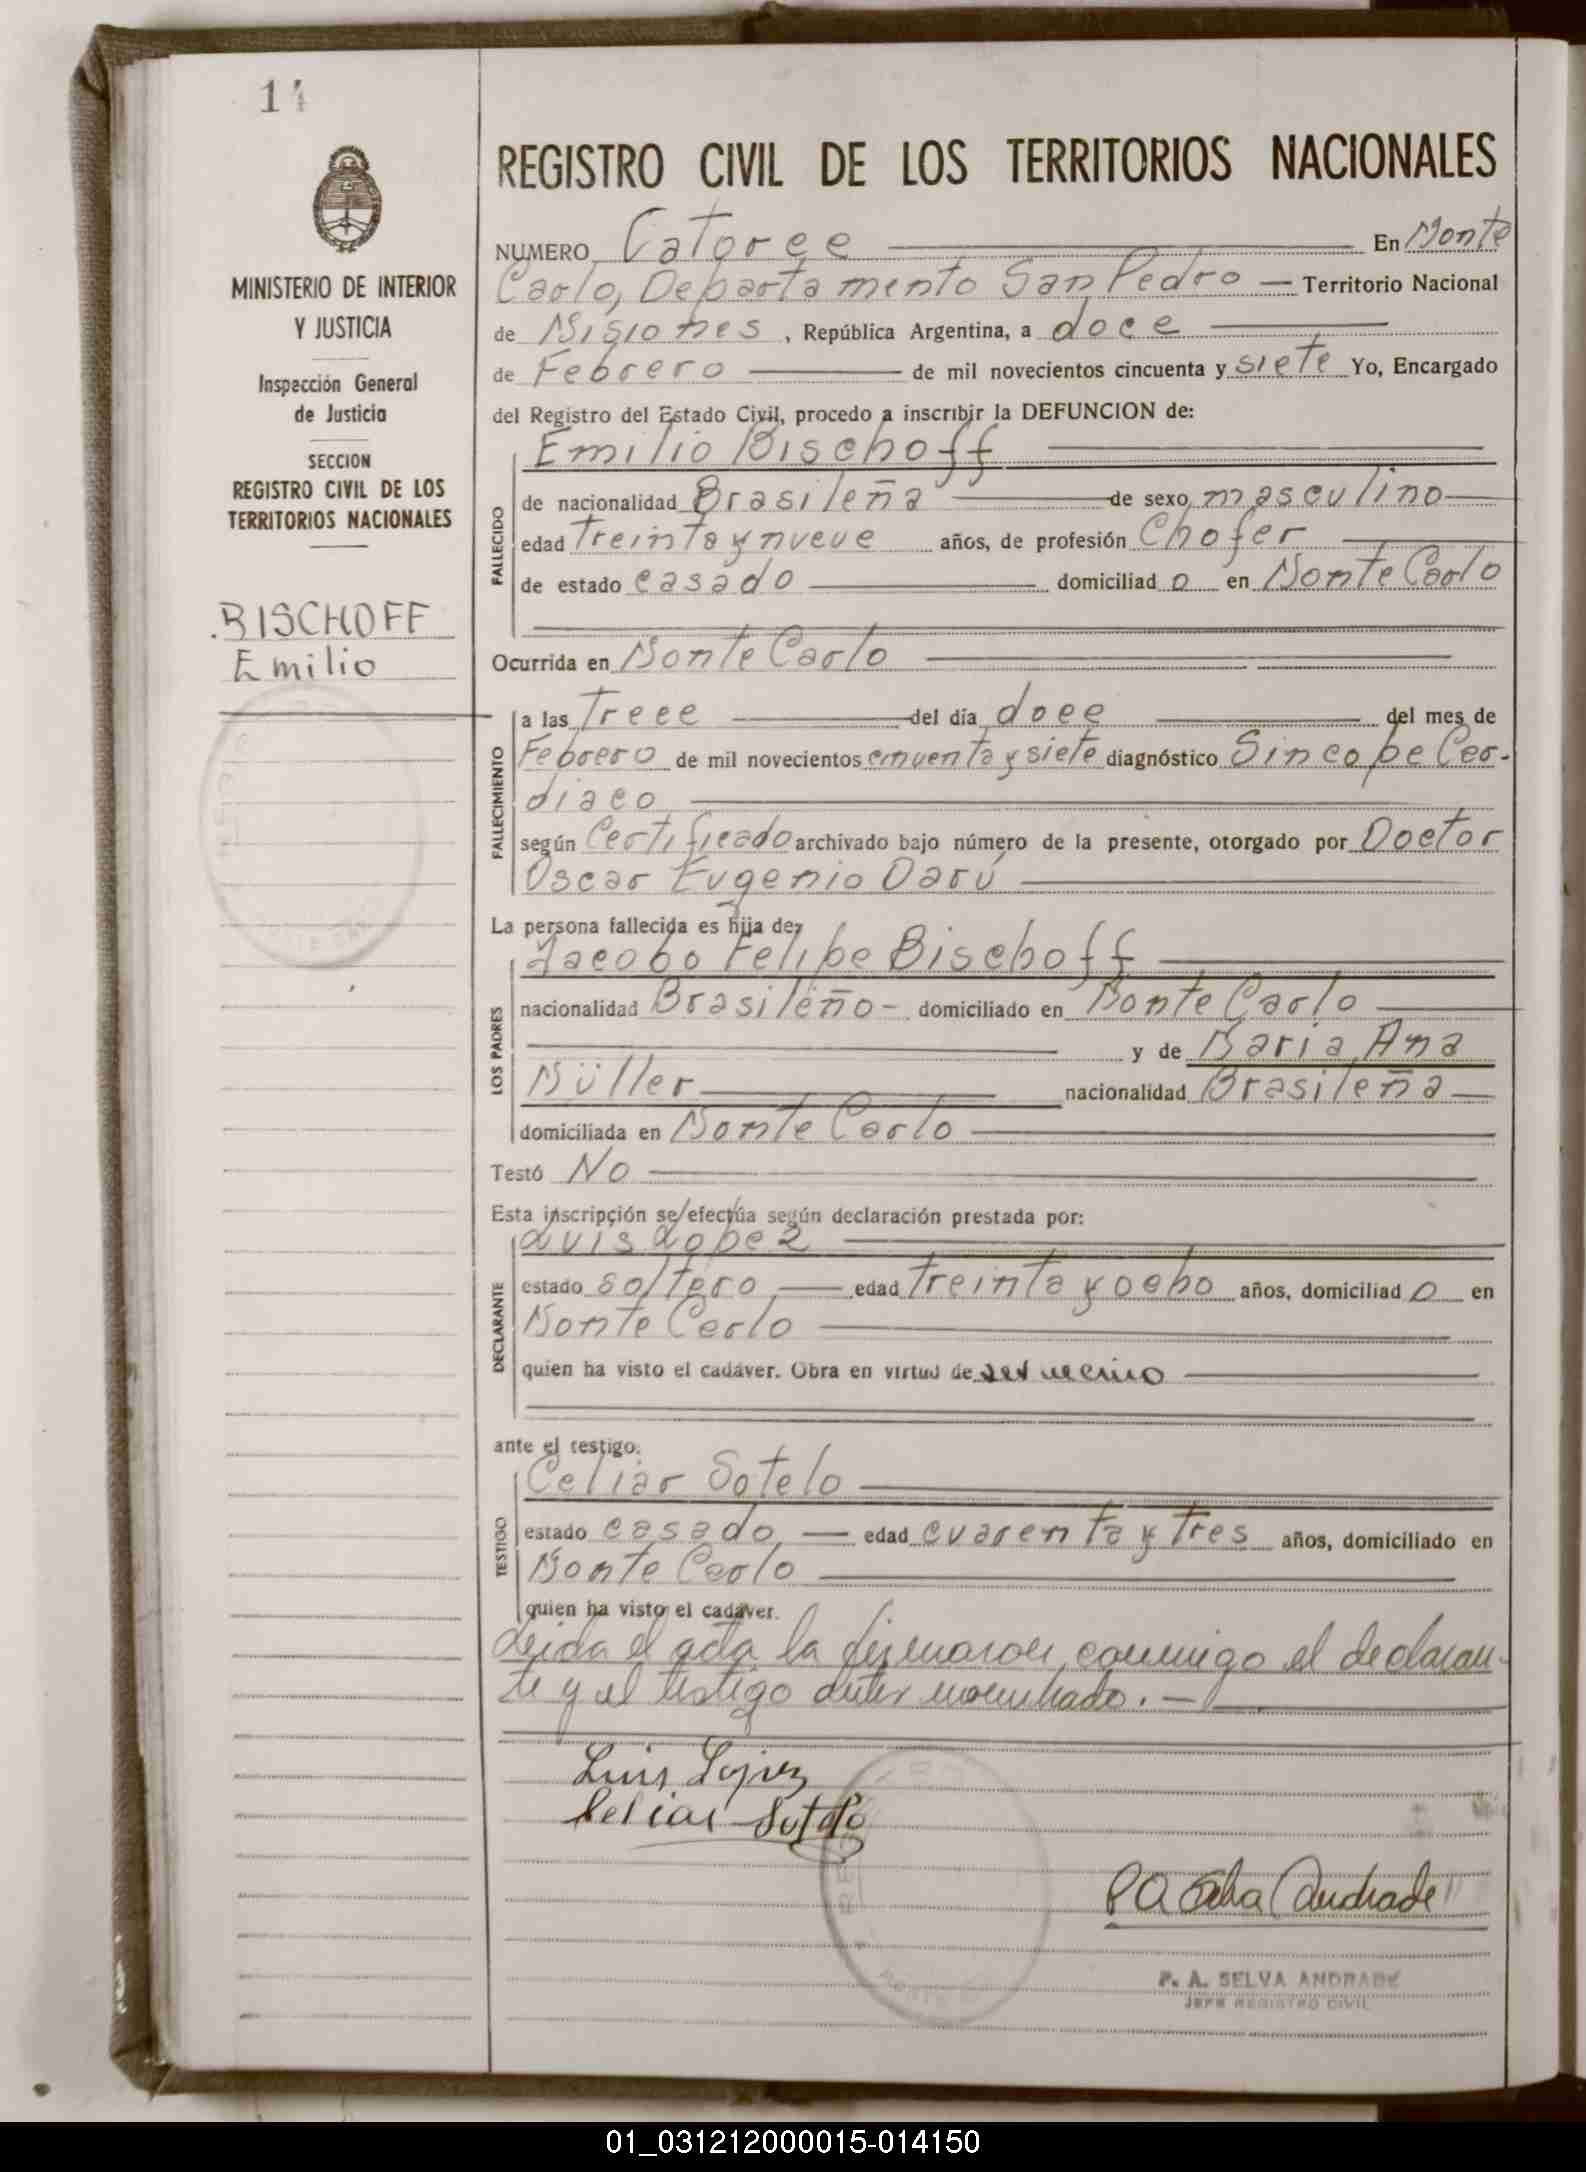 14
MINISTERIO DE INTERIOR
Y JUSTICIA
Inspección General
de Justicia
SECCION
REGISTRO CIVIL DE LOS
TERRITORIOS NACIONALES
BISCHOFF
Emilio
REGISTRO CIVIL DE LOS TERRITORIOS NACIONALES
NUMERO Catorce En Monte
Carlo, Departamento San Pedro Territorio Nacional
de Misiones, República Argentina, a doce
de Febrero de mil novecientos cincuenta y siete Yo, Encargado
del Registro del Estado Civil, procedo a inscribir la DEFUNCION de:
Emilio Bischoff
FALLECIDO
de nacionalidad Brasileña de sexo masculino
edad Treinta y nueve años, de profesión Chofer
de estado casado domiciliad o en Monte Carlo
Ocurrida en Monte Carlo
FALLECIMIENTO
a las Trece del día doce del mes de
Febrero de mil novecientos cincuenta y siete diagnóstico Sincope Car-
diaco
según Certificado archivado bajo número de la presente, otorgado por Doctor
Oscar Eugenio Darú
La persona fallecida es hija de:
Jacobo Felipe Bischoff
LOS PADRES
nacionalidad Brasileño - domiciliado en Monte Carlo
y de Maria Ana
Müller nacionalidad Brasileña
domiciliada en Monte Carlo
Testó No
Esta inscripción se efectúa según declaración prestada por:
Luis Lopez
DECLARANTE
estado soltero edad Treinta y ocho años, domiciliad o en
Monte Carlo
quien ha visto el cadáver. Obra en virtud de ser vecino
ante el testigo:
Celiar Sotelo
TESTIGO
estado casado edad cuarenta y Tres años, domiciliado en
Monte Carlo
quien ha visto el cadáver.
Leida el acta la firmaron conmigo el declaran-
te y el testigo antes nombrado. -
Luis Lopez
Celiar Sotelo
P A Selva Andrade
P. A. SELVA ANDRADE
JEFE REGISTRO CIVIL
01_031212000015-014150